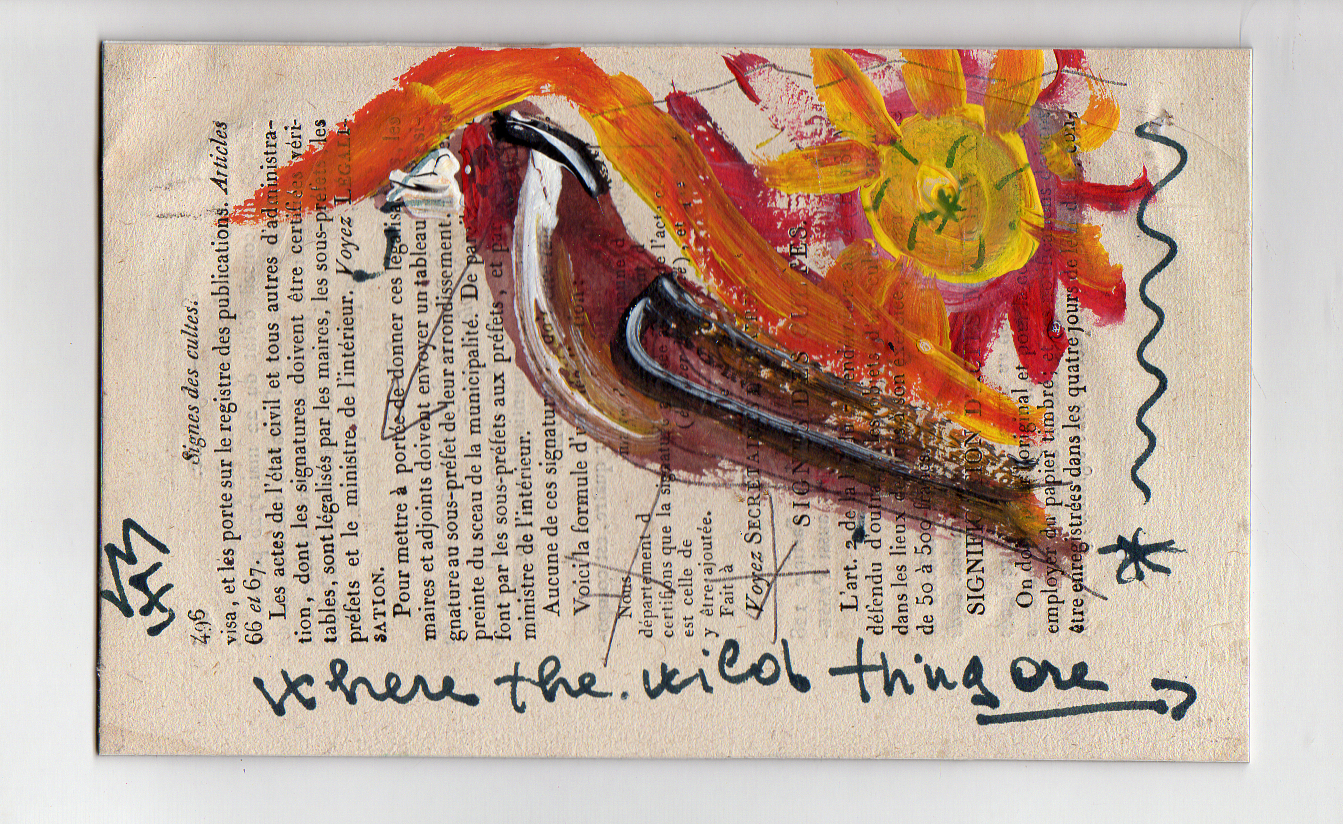 496 Signes des cultes.
visa, et les porte sur le registre des publications. Articles
66 et 67.
Les actes de l'état civil et tous autres d'administra-
tion, dont les signatures doivent être certifiées véri-
tables, sont légalisés par les maires, les sous-préfets, les
préfets et le ministre de l'intérieur. Voyez LÉGALI-
SATION.
Pour mettre à portée de donner ces légalisa les
maires et adjoints doivent envoyer un tableau si-
gnature au sous-préfet de leur arrondissement.
preinte du sceau de la municipalité. De
font par les sous-préfets aux préfets, et par
ministre de l'intérieur.
Aucune de ces signatur
Voici la formule d'
Nous
département d
certifions que la signature
est celle de
y être ajoutée.
Fait à
Voyez SECRÉTA
SIGN
L'art. 2 de la
défendu d'ou
dans les lieux
de 50 à 500
SIGNI
On do l'original et
employ du papier timbré
être enregistrées dans les quatre jours de
where the wild thing are